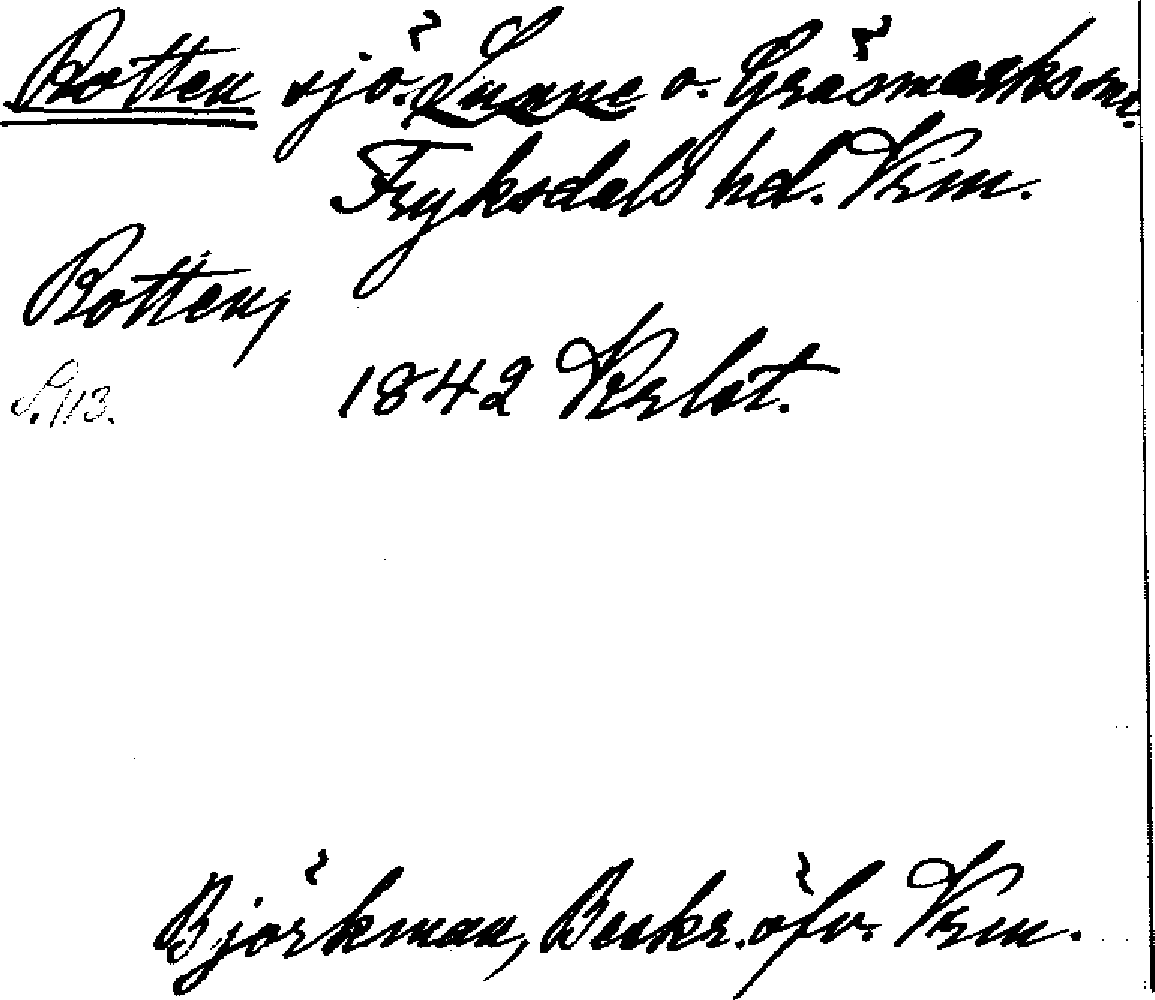 Rotten sjö. Lunne o. Gräsmarks snr.
Fryksdals hd. Vrm.
Rotten,
S. 113. 1842 Krlst.
Björkman, Beskr. öfv. Vrm.